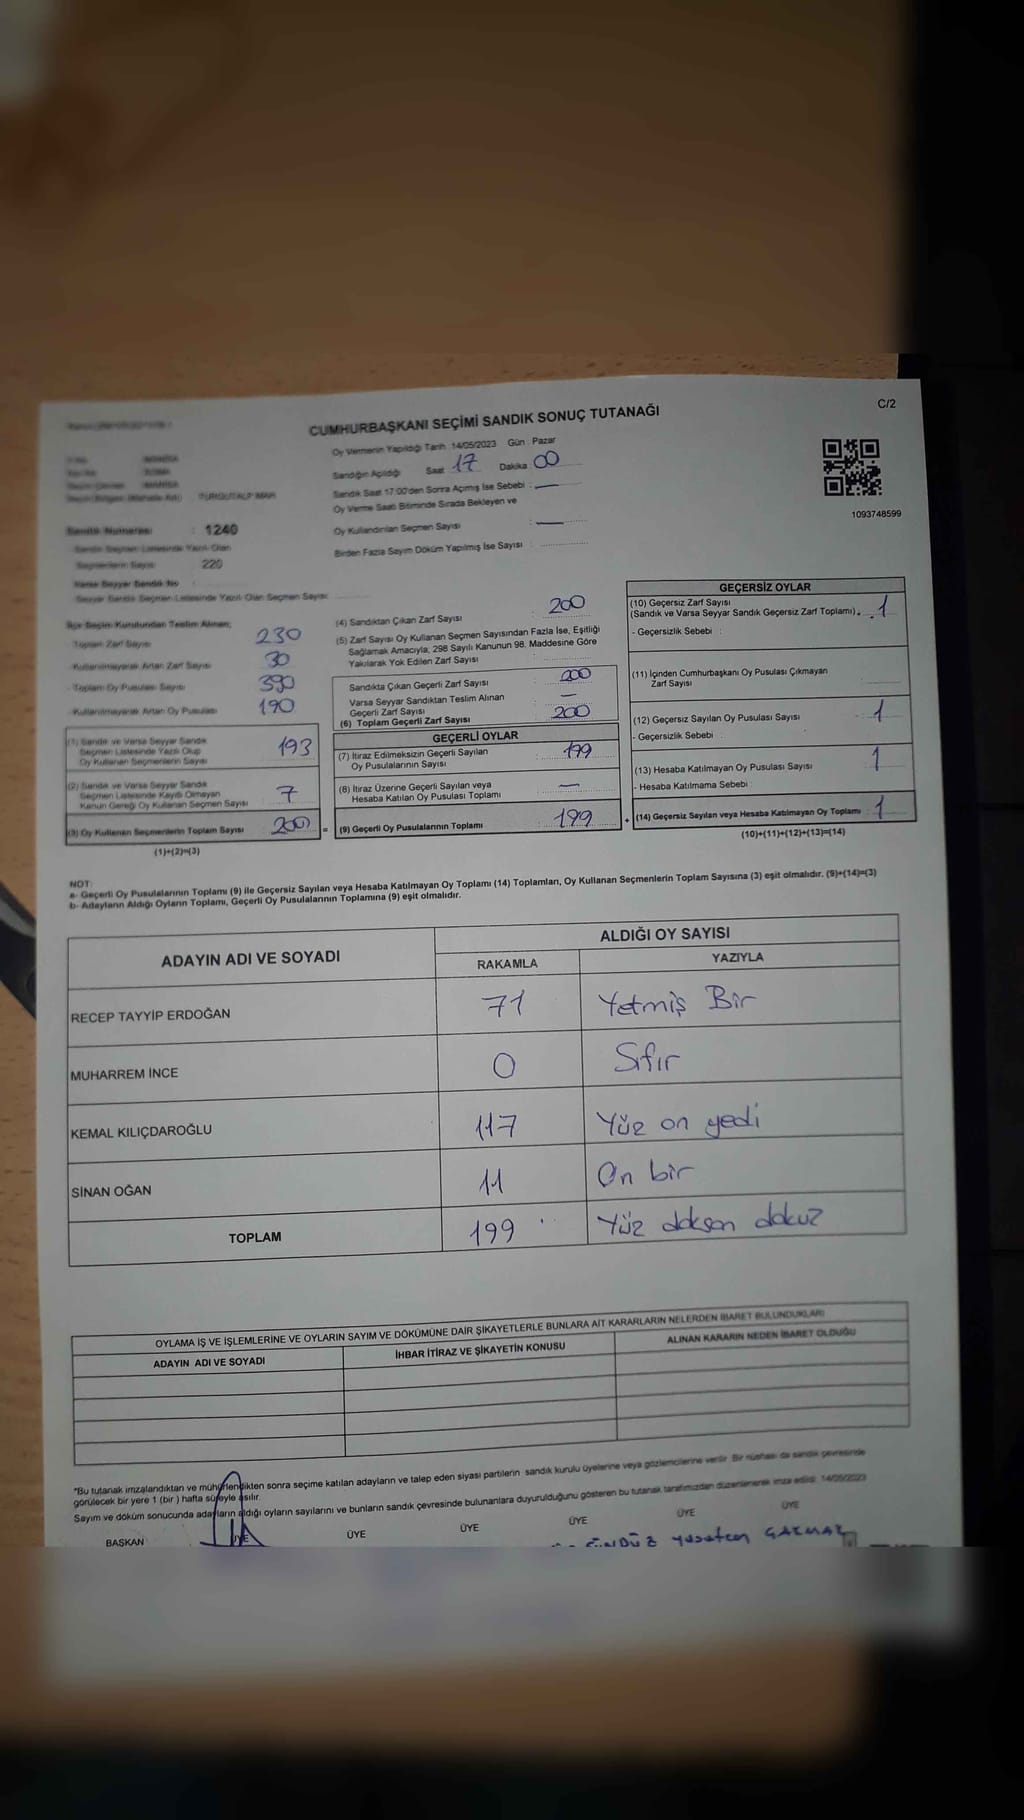 C/2
CUMHURBAŞKANI SEÇİMİ SANDIK SONUÇ TUTANAĞI
Oy Vermenin Yapıldığı Tarih 14/05/2023 Gün : Pazar
Sandığın Açıldığı Saat 17 Dakika 00
Sandık Saat 17:00'den Sonra Açımış İse Sebebi : —
Oy Verme Saati Bitiminde Sırada Bekleyen ve
Oy Kullandırılan Seçmen Sayısı —
Birden Fazla Sayım Döküm Yapılmış İse Sayısı
1093748599
MANİSA
SOMA
MANİSA
TURGUTALP MAH
Sandık Numarası : 1240
Sandık Seçmen Listesinde Yazılı Olan
Seçmenlerin Sayısı 220
Varsa Seyyar Sandık No
Seyyar Sandık Seçmen Listesinde Yazılı Olan Seçmen Sayısı
İlçe Seçim Kurulundan Teslim Alınan;
Toplam Zarf Sayısı 230
Kullanılmayarak Artan Zarf Sayısı 30
- Toplam Oy Pusulası Sayısı 390
- Kullanılmayarak Artan Oy Pusulası 190
(1) Sandık ve Varsa Seyyar Sandık
Seçmen Listesinde Yazılı Olup
Oy Kullanan Seçmenlerin Sayısı 193
(2) Sandık ve Varsa Seyyar Sandık
Seçmen Listesinde Kayıtlı Olmayan
Kanun Gereği Oy Kullanan Seçmen Sayısı 7
(3) Oy Kullanan Seçmenlerin Toplam Sayısı 200 =
(1)+(2)=(3)
(4) Sandıktan Çıkan Zarf Sayısı : 200
(5) Zarf Sayısı Oy Kullanan Seçmen Sayısından Fazla İse, Eşitliği
Sağlamak Amacıyla; 298 Sayılı Kanunun 98. Maddesine Göre
Yakılarak Yok Edilen Zarf Sayısı
Sandıkta Çıkan Geçerli Zarf Sayısı 200
Varsa Seyyar Sandıktan Teslim Alınan
Geçerli Zarf Sayısı —
(6) Toplam Geçerli Zarf Sayısı 200
GEÇERLİ OYLAR
(7) İtiraz Edilmeksizin Geçerli Sayılan
Oy Pusulalarının Sayısı 199
(8) İtiraz Üzerine Geçerli Sayılan veya
Hesaba Katılan Oy Pusulası Toplamı —
(9) Geçerli Oy Pusulalarının Toplamı 199 +
GEÇERSİZ OYLAR
(10) Geçersiz Zarf Sayısı
(Sandık ve Varsa Seyyar Sandık Geçersiz Zarf Toplamı) 1
- Geçersizlik Sebebi :
(11) İçinden Cumhurbaşkanı Oy Pusulası Çıkmayan
Zarf Sayısı
(12) Geçersiz Sayılan Oy Pusulası Sayısı 1
- Geçersizlik Sebebi :
(13) Hesaba Katılmayan Oy Pusulası Sayısı 1
- Hesaba Katılmama Sebebi
(14) Geçersiz Sayılan veya Hesaba Katılmayan Oy Toplamı : 1
(10)+(11)+(12)+(13)=(14)
NOT:
a- Geçerli Oy Pusulalarının Toplamı (9) ile Geçersiz Sayılan veya Hesaba Katılmayan Oy Toplamı (14) Toplamları, Oy Kullanan Seçmenlerin Toplam Sayısına (3) eşit olmalıdır. (9)+(14)=(3)
b- Adayların Aldığı Oyların Toplamı, Geçerli Oy Pusulalarının Toplamına (9) eşit olmalıdır.
ADAYIN ADI VE SOYADI
ALDIĞI OY SAYISI
RAKAMLA YAZIYLA
RECEP TAYYİP ERDOĞAN 71 Yetmiş Bir
MUHARREM İNCE 0 Sıfır
KEMAL KILIÇDAROĞLU 117 Yüz on yedi
SİNAN OĞAN 11 On bir
TOPLAM 199 Yüz doksan dokuz
OYLAMA İŞ VE İŞLEMLERİNE VE OYLARIN SAYIM VE DÖKÜMÜNE DAİR ŞİKAYETLERLE BUNLARA AİT KARARLARIN NELERDEN İBARET BULUNDUKLARI
ADAYIN ADI VE SOYADI İHBAR İTİRAZ VE ŞİKAYETİN KONUSU ALINAN KARARIN NEDEN İBARET OLDUĞU
*Bu tutanak imzalandıktan ve mühürlendikten sonra seçime katılan adayların ve talep eden siyasi partilerin sandık kurulu üyelerine veya gözlemcilerine verilir. Bir nüshası da sandık çevresinde
görülecek bir yere 1 (bir) hafta süreyle asılır.
Sayım ve döküm sonucunda adayların aldığı oyların sayılarını ve bunların sandık çevresinde bulunanlara duyurulduğunu gösteren bu tutanak tarafımızdan düzenlenerek imza edildi. 14/05/2023
BAŞKAN ÜYE ÜYE ÜYE ÜYE ÜYE ÜYE